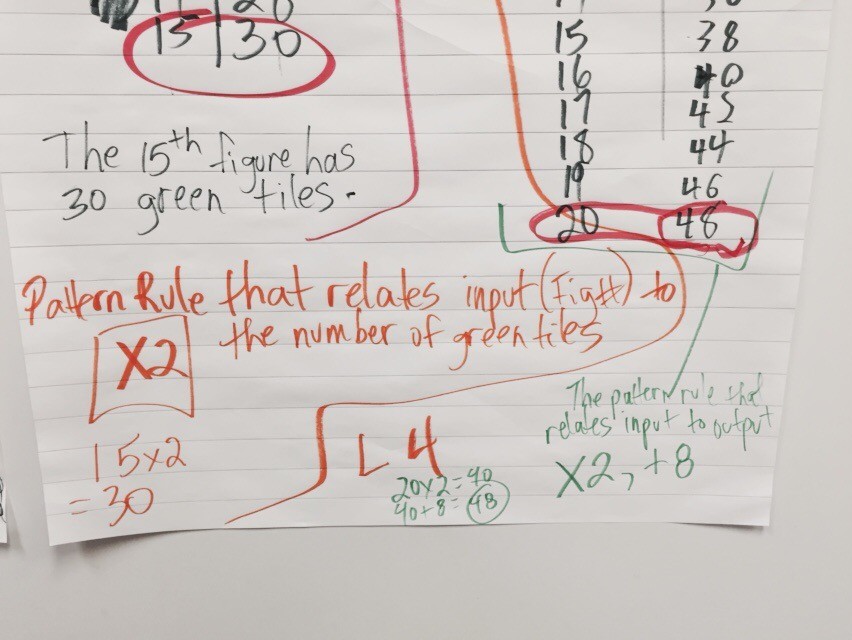 15 30
The 15th figure has
30 green tiles.
15 38
16 40
17 42
18 44
19 46
20 48
Pattern Rule that relates input (fig#) to
the number of green tiles
X2
15x2
= 30
L 4
20x2=40
40+8=48
The pattern rule that
relates input to output
X2, +8